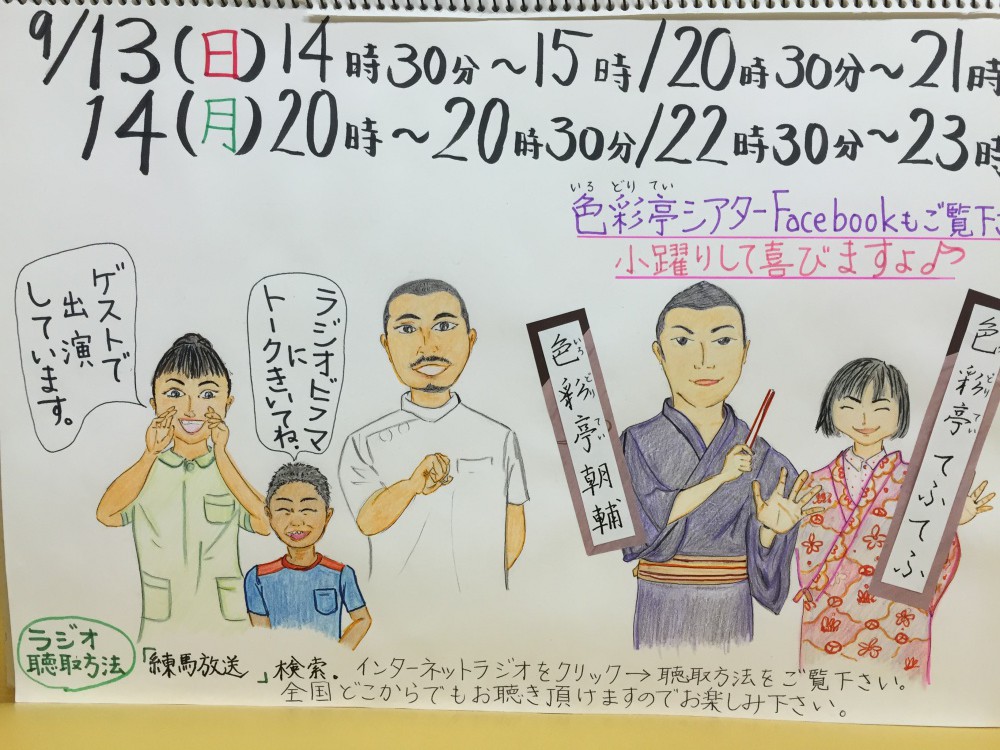 9/13(日)14時30分〜15時/20時30分〜21時
14(月)20時〜20時30分/22時30分〜23時
いろ どり てい
色彩亭シアターFacebookもご覧下さ
小躍りして喜びますよ♪
ゲストで
出演
しています。
ラジオドラマ
に
トークきいてね.
色彩亭朝輔
いろどりてい
色彩亭てふてふ
どりてい
ラジオ
聴取方法
「練馬放送」検索. インターネットラジオをクリック→聴取方法をご覧下さい。
全国どこからでもお聴き頂けますのでお楽しみ下さい。